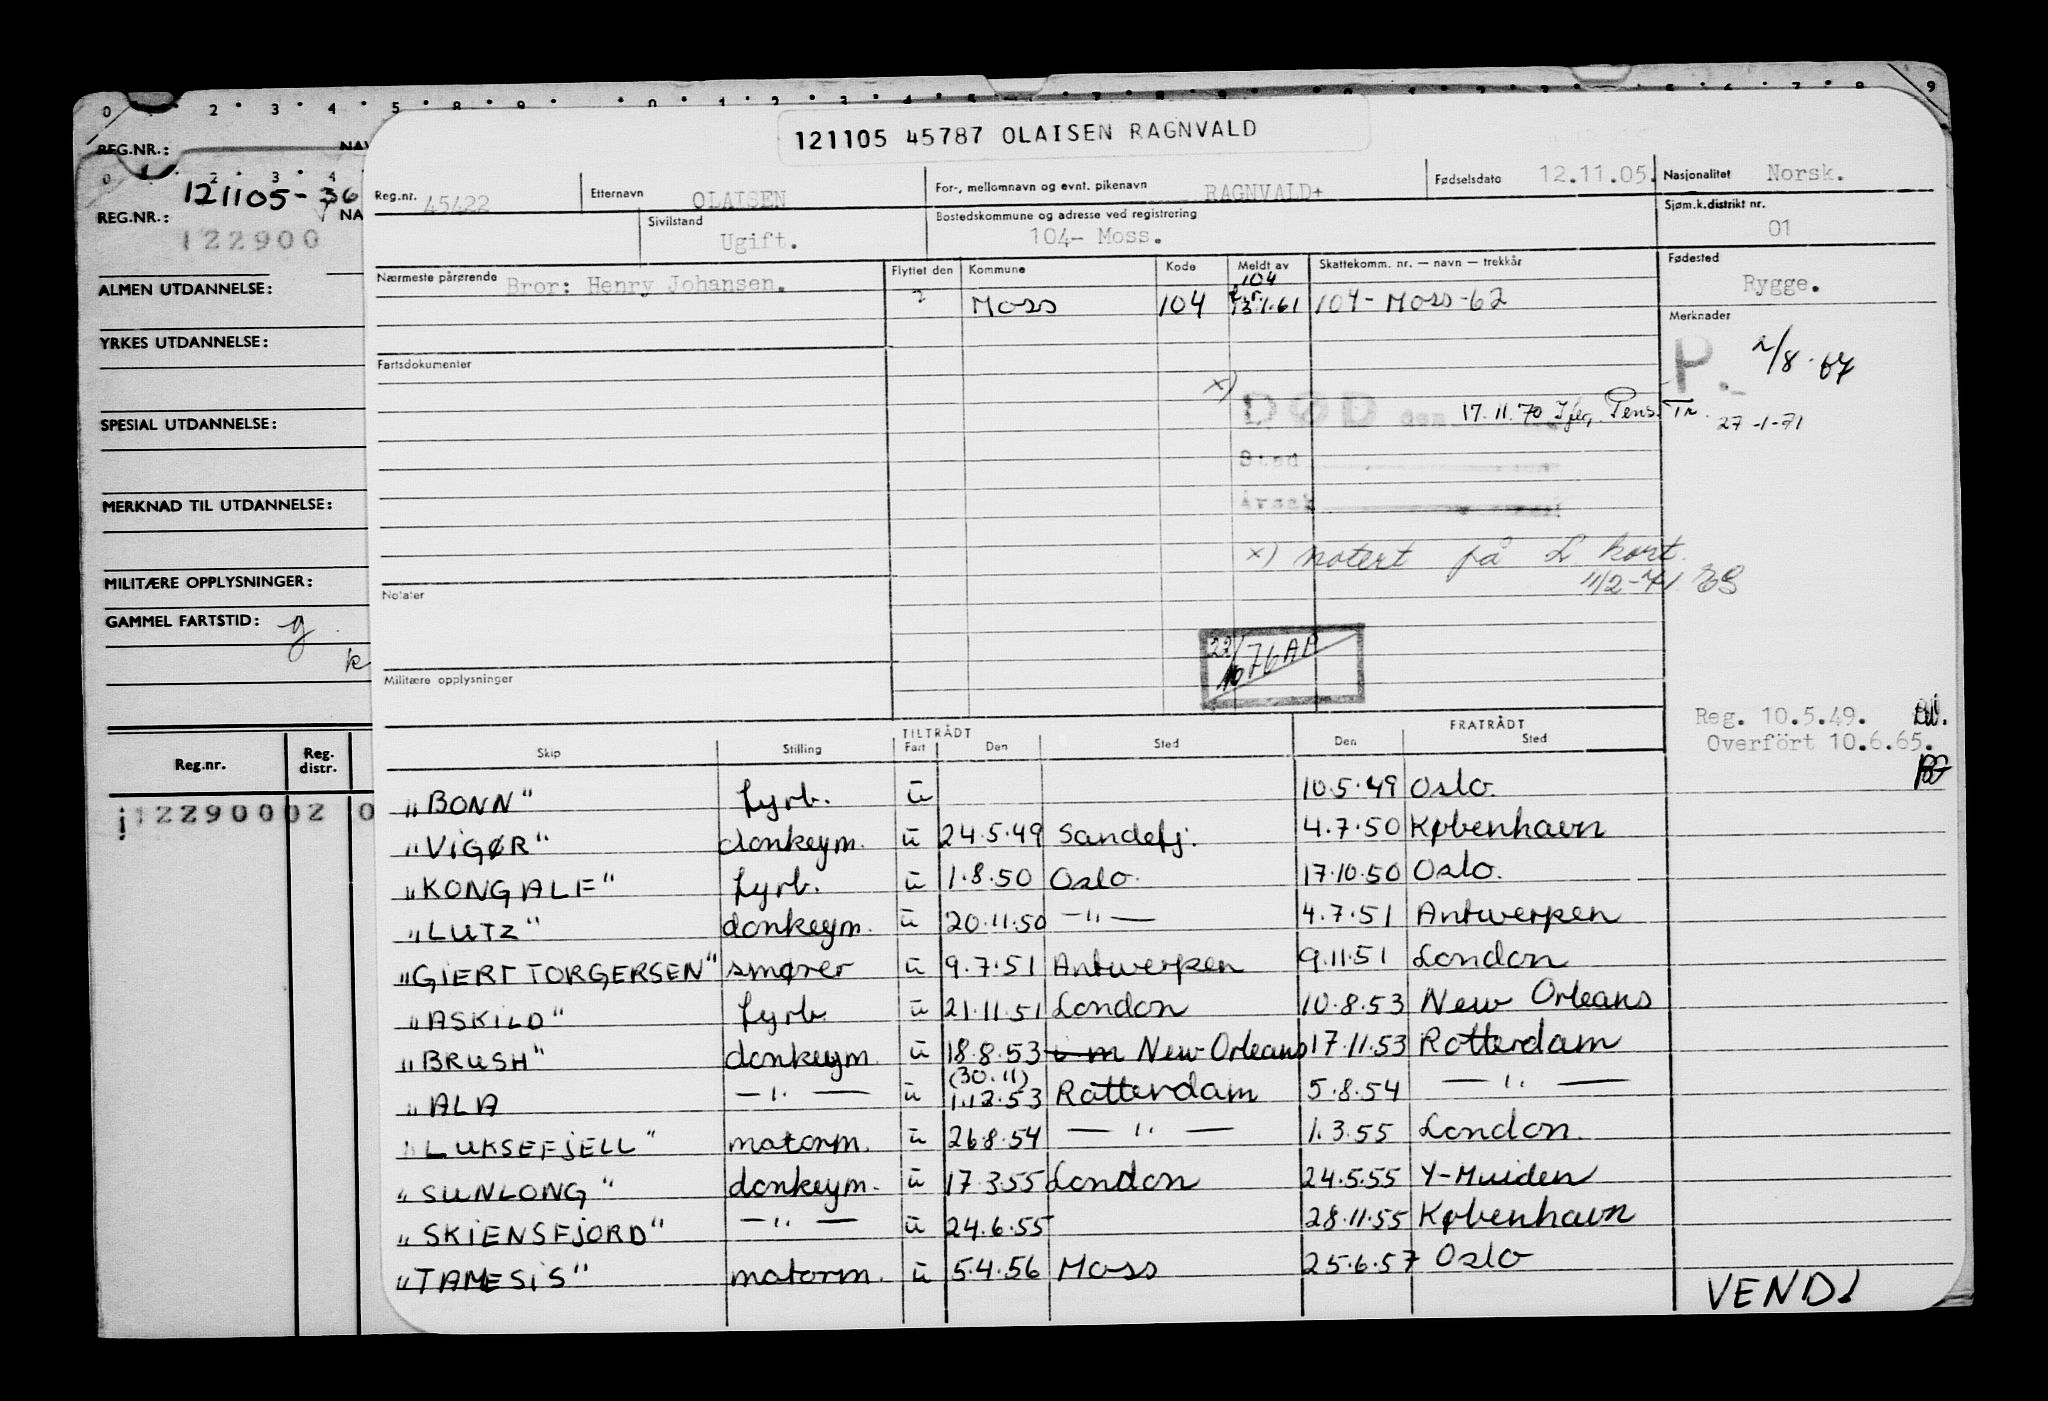 121105 45787 OLAISEN RAGNVALD
REG.NR.:
121105-36
REG.NR.: NA
122900
ALMEN UTDANNELSE:
YRKES UTDANNELSE:
SPESIAL UTDANNELSE:
MERKNAD TIL UTDANNELSE:
MILITÆRE OPPLYSNINGER:
GAMMEL FARTSTID: g
k
Reg.nr. Reg. distr.
12290002 0
Reg.nr. 45422 Etternavn OLAISEN For-, mellomnavn og evnt. pikenavn RAGNVALD+ Fødselsdato 12.11.05. Nasjonalitet Norsk.
Sivilstand Ugift. Bostedskommune og adresse ved registrering 104- Moss. Sjøm.k.distrikt nr. 01
Nærmeste pårørende Bror: Henry Johansen. Flyttet den Kommune Kode Meldt av Skattekomm. nr. — navn — trekkår Fødested Rygge.
104
? Moss 104 13.1.61 104-Moss-62
Merknader
P. 2/8-67
Fartsdokumenter
x) DØD den 17.11.70 Ifлg. Pens.Tr. 27-1-71
Sted
Årsak
x) notert på L kort.
11/2-71 ES
Notater
22/10 76 AA
Militære opplysninger
Reg. 10.5.49.
Overført 10.6.65.
TILTRÅDT FRATRÅDT
Skip Stilling Fart Den Sted Den Sted
"BONN" fyrb. u 10.5.49 Oslo.
"VIGØR" donkeym. u 24.5.49 Sandefj. 4.7.50 København
"KONG ALF" fyrb. u 1.8.50 Oslo. 17.10.50 Oslo.
"LUTZ" donkeym. u 20.11.50 —"— 4.7.51 Antwerpen
"GJERT TORGERSEN" smører u 9.7.51 Antwerpen 9.11.51 London
"ASKILD" fyrb u 21.11.51 London 10.8.53 New Orleans
"BRUSH" donkeym. u 18.8.53 New Orleans 17.11.53 Rotterdam
"ALA —"— u (30.11) 1.12.53 Rotterdam 5.8.54 —"—
"LUKSEFJELL" motorm. u 26.8.54 —"— 1.3.55 London.
"SUNLONG" donkeym. u 17.3.55 London 24.5.55 Y-Muiden
"SKIENSFJORD" —"— u 24.6.55 28.11.55 København
"TAMESIS" motorm. u 5.4.56 Moss 25.6.57 Oslo
VEND!